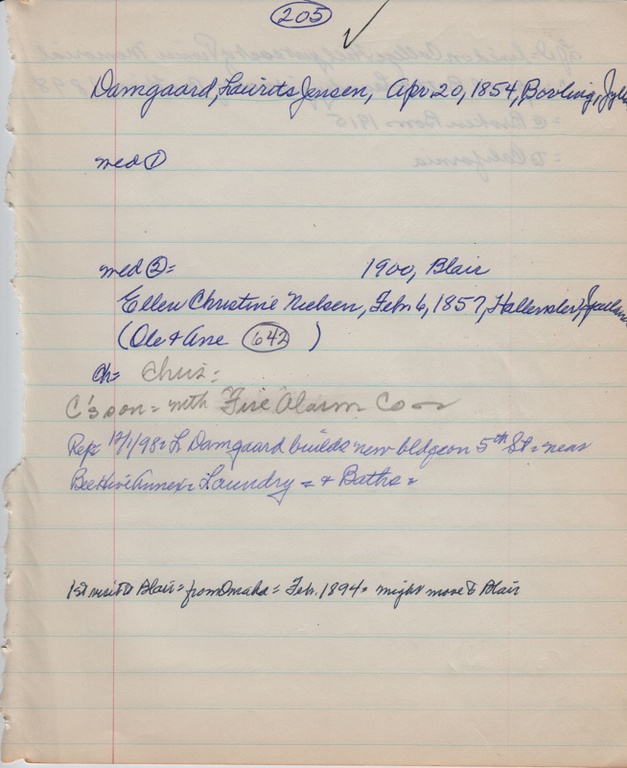 205
Damgaard, Laurits Jensen, Apr. 20, 1854, Bovling, Jyll
med ①
med ②= 1900, Blair
Ellen Christine Nielsen, Feb. 6, 1857, Hallenslev,
(Ole & Ane 642 )
Ch= Chris=
C's son = with Fire Alarm Co
Rep= 12/1/98= L Damgaard builds new bldg on 5th St = near
BeeHive Annex = Laundry = & Baths =
1st visit to Blair = from Omaha = Feb. 1894 = might move to Blair